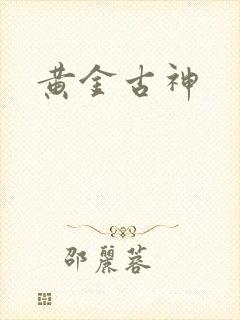 黄金古神
邵麗蓉